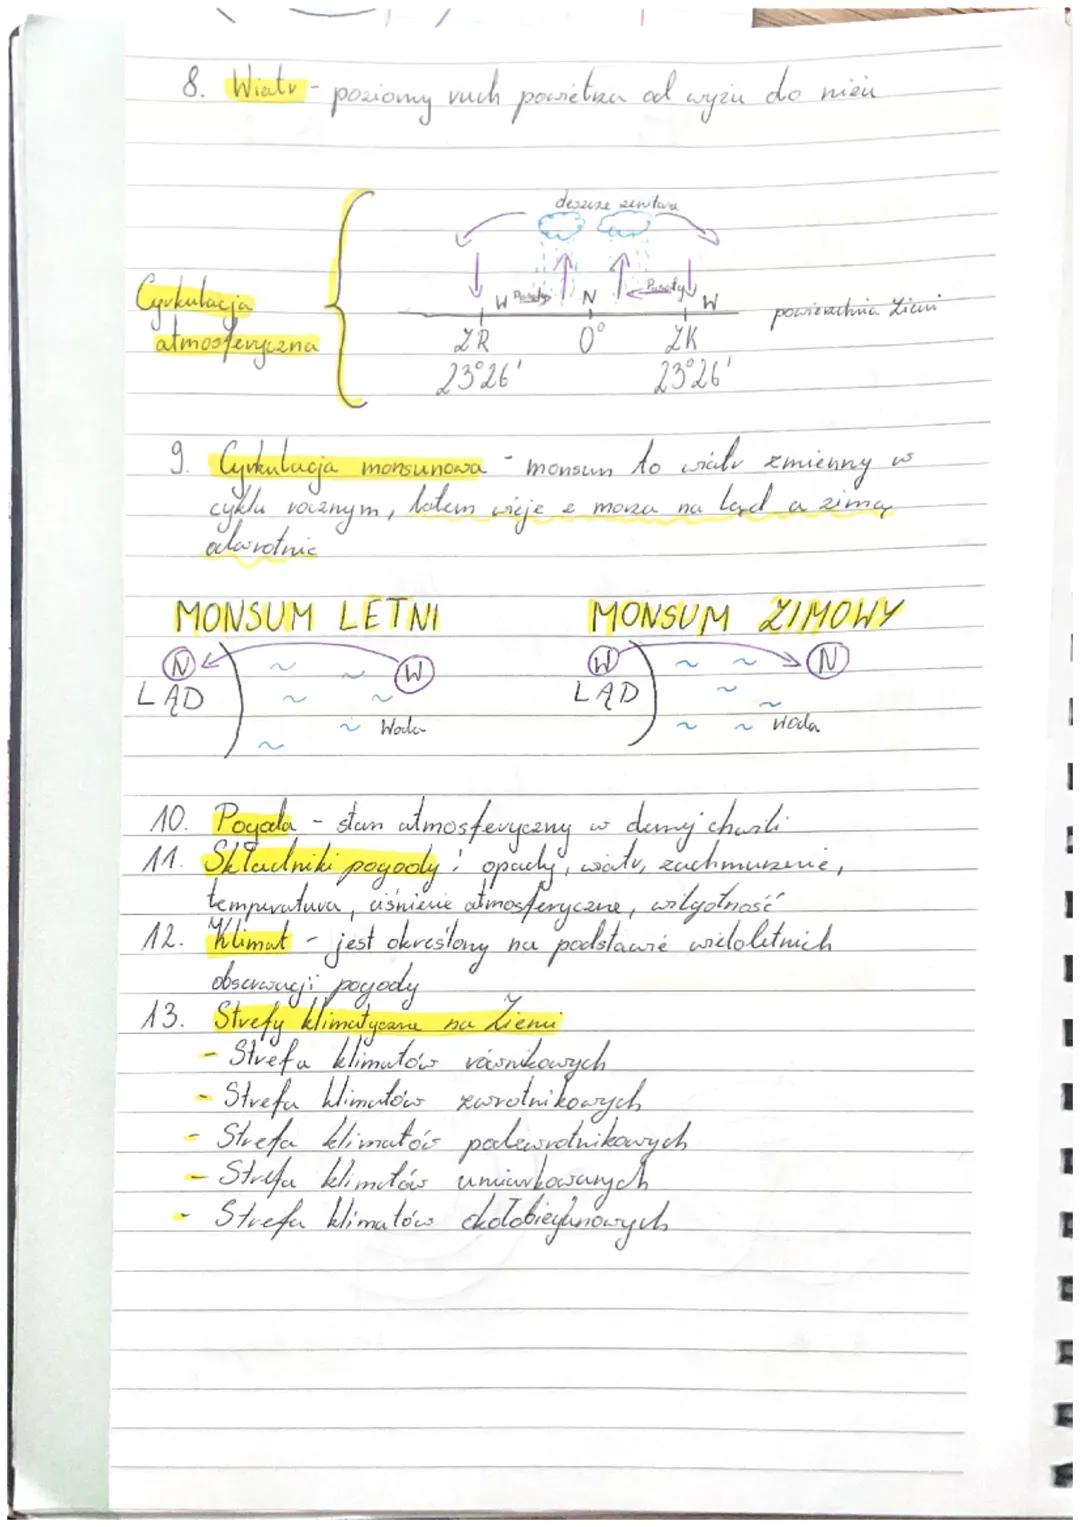 8. Wiatr - poziomy ruch powietrza od wyżu do niżu
deszcze zenitalne
Cyrkulacja
atmosferyczna
W Pasaty N Pasaty W
powierzchnia Ziemi
ZR 0° ZK
23°26' 23°26'
9. Cyrkulacja monsunowa - monsun to wiatr zmienny w
cyklu rocznym, latem wieje z morza na ląd a zimą
odwrotnie
MONSUM LETNI MONSUM ZIMOWY
N W W N
LĄD LĄD
Woda Woda
10. Pogoda - stan atmosferyczny w danej chwili
11. Składniki pogody: opady, wiatr, zachmurzenie,
temperatura, ciśnienie atmosferyczne, wilgotność
12. Klimat - jest określony na podstawie wieloletnich
obserwacji pogody
13. Strefy klimatyczne na Ziemi
- Strefa klimatów równikowych
- Strefa klimatów zwrotnikowych
- Strefa klimatów podzwrotnikowych
- Strefa klimatów umiarkowanych
- Strefa klimatów okołobiegunowych